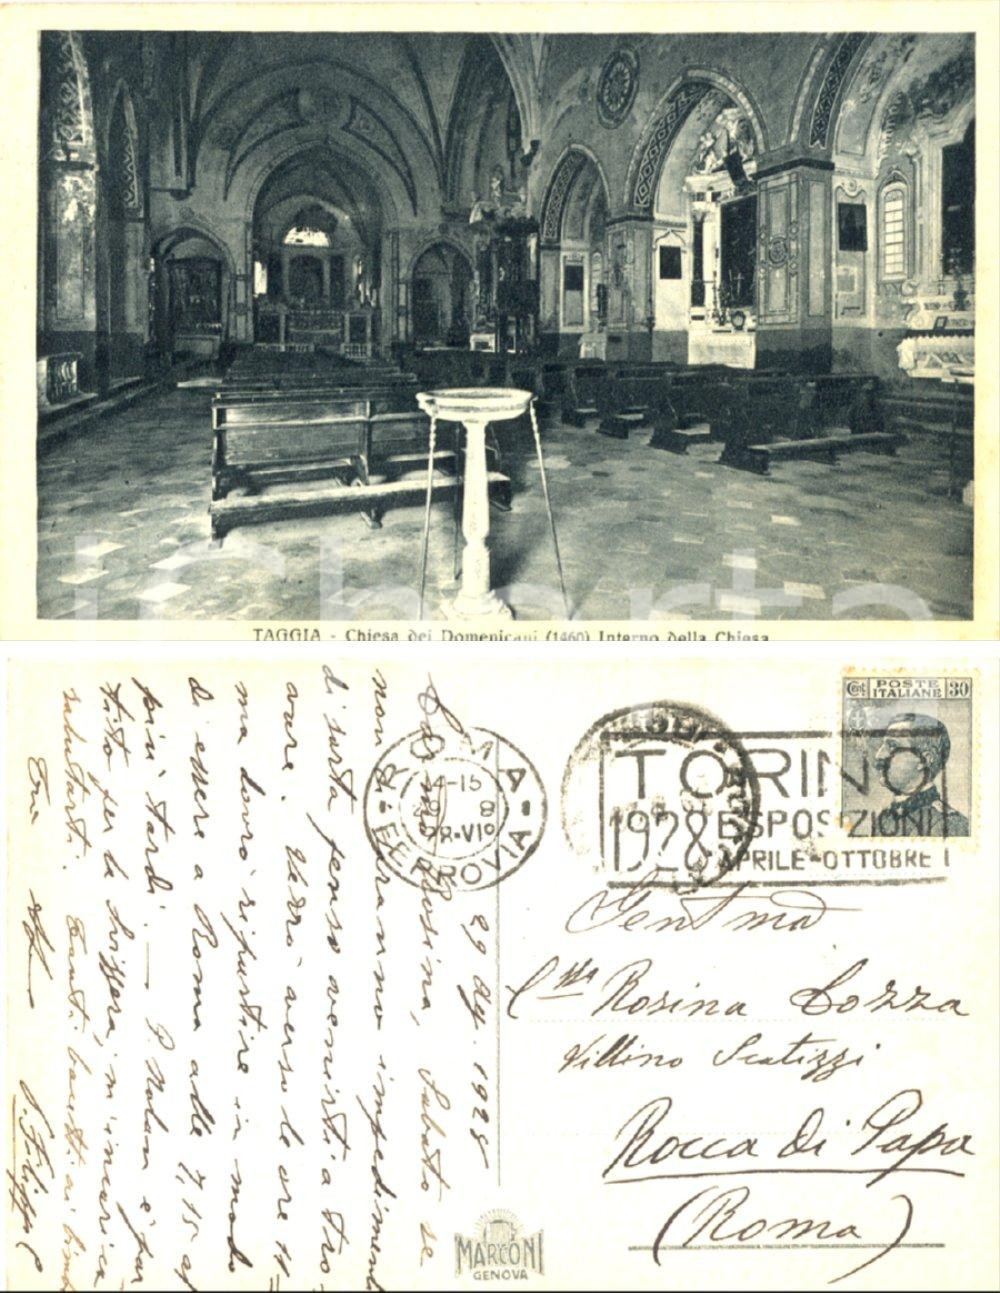 TAGGIA - Chiesa dei Domenicani (1460) Interno della Chiesa
POSTE
Cent ITALIANE 30
ROMA
14-15
8
28-VI°
FERROVIA
TORINO
1928 ESPOSIZIONI
APRILE-OTTOBRE
29 Ag. 1928
Carma Rosina, Sabato se
non verranno impedimenti
di sorta penso venirti a tro
vare. Verrò verso le ore 11
ma dovrò ripartire in modo
di essere a Roma alle 7,15 al
più tardi. — P. Nolan è par
tito per la Svizzera, m'incarica
salutarti. Tanti saluti ai bimbi
Tuo aff
P. Filippo
Gentma
Rosina Cozza
Villino Scatizzi
Rocca di Papa
(Roma)
MARCONI
GENOVA